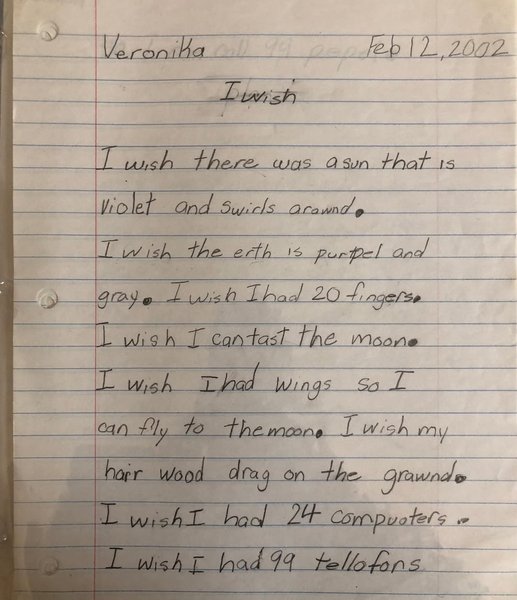 Veronika Feb 12, 2002
I wish
I wish there was a sun that is
violet and swirls arawnd.
I wish the erth is purpel and
gray. I wish I had 20 fingers.
I wish I can tast the moon.
I wish I had wings so I
can fly to the moon. I wish my
hair wood drag on the grawnd.
I wish I had 24 compuoters.
I wish I had 99 tellofons